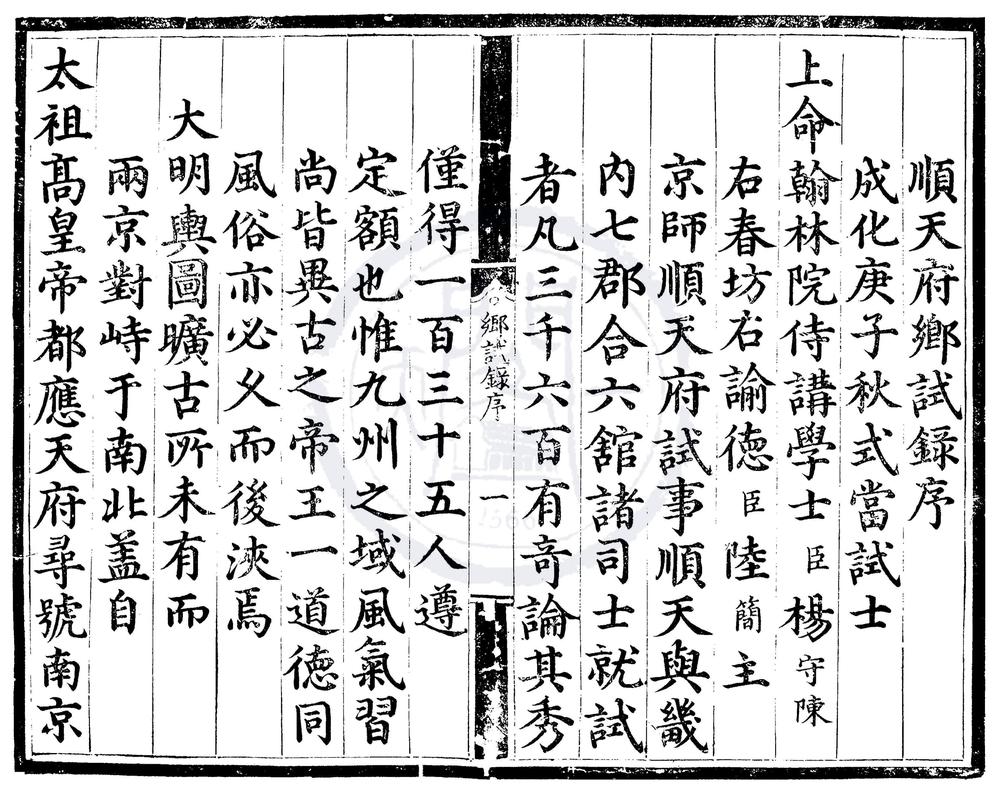 順天府鄉試録序
成化庚子秋式當試士
上命翰林院侍講學士臣楊守陳
右春坊右諭德臣陸簡主
京師順天府試事順天與畿
内七郡合六舘諸司士就試
者凡三千六百有竒論其秀
鄉試録序
一
僅得一百三十五人遵
定額也惟九州之域風氣習
尚皆異古之帝王一道德同
風俗亦必久而後浹焉
大明輿圖曠古所未有而
兩京對峙于南北盖自
太祖髙皇帝都應天府尋號南京